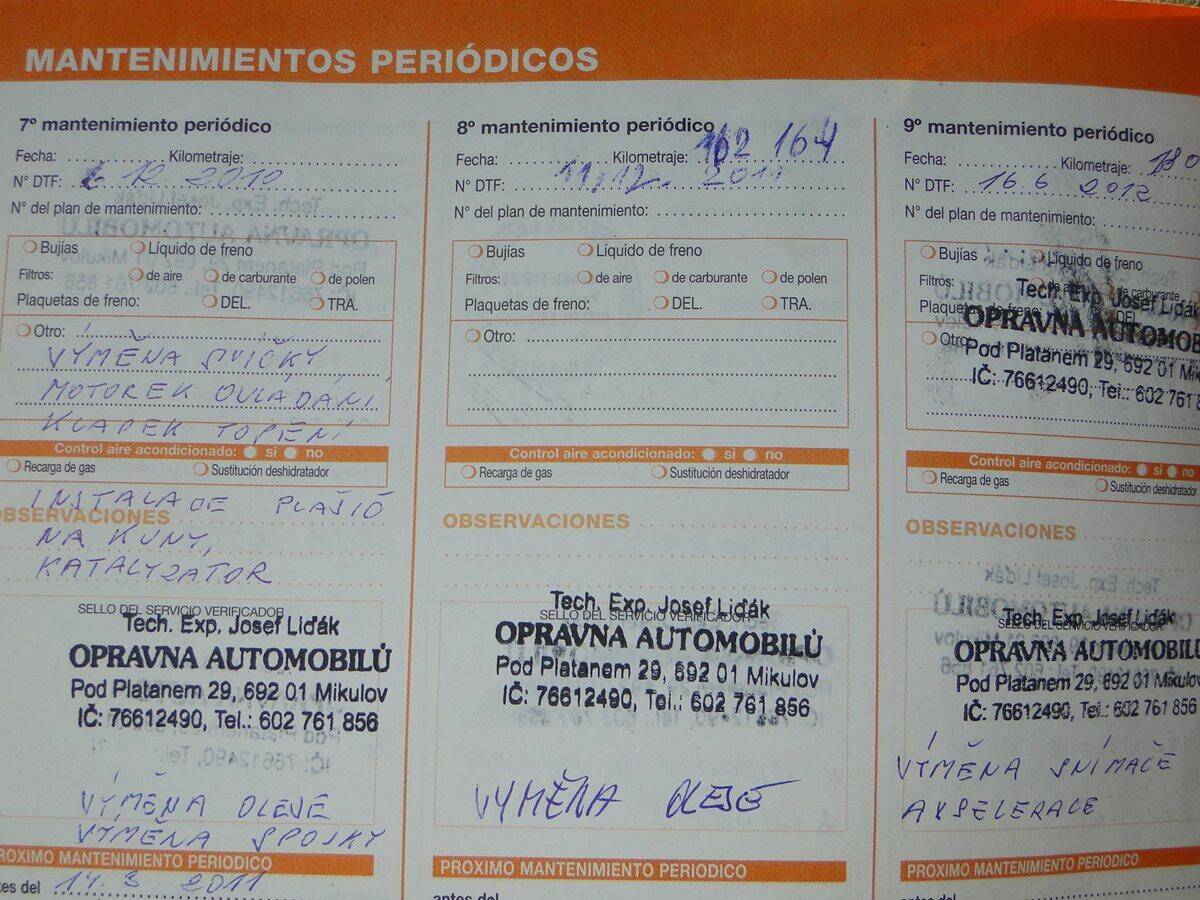 MANTENIMIENTOS PERIÓDICOS
7º mantenimiento periódico
Fecha: Kilometraje:
Nº DTF: 6 12 2010
Nº del plan de mantenimiento:
Bujías Líquido de freno
Filtros: de aire de carburante de polen
Plaquetas de freno: DEL. TRA.
Otro:
VÝMĚNA SVÍČKY,
MOTOREK OVLÁDÁNÍ
KLAPEK TOPENÍ
Control aire acondicionado: si no
Recarga de gas Sustitución deshidratador
INSTALACE PLAŠIČ
OBSERVACIONES
NA KUNY,
KATALYZATOR
SELLO DEL SERVICIO VERIFICADOR
Tech. Exp. Josef Liďák
OPRAVNA AUTOMOBILŮ
Pod Platanem 29, 692 01 Mikulov
IČ: 76612490, Tel.: 602 761 856
VÝMĚNA OLEJE
VÝMĚNA SPOJKY
PROXIMO MANTENIMIENTO PERIODICO
tes del 14. 3 2011
8º mantenimiento periódico
Fecha: Kilometraje: 162 164
Nº DTF: 11,12. 2011
Nº del plan de mantenimiento:
Bujías Líquido de freno
Filtros: de aire de carburante de polen
Plaquetas de freno: DEL. TRA.
Otro:
Control aire acondicionado: si no
Recarga de gas Sustitución deshidratador
OBSERVACIONES
Tech. Exp. Josef Liďák
SELLO DEL SERVICIO VERIFICADOR
OPRAVNA AUTOMOBILŮ
Pod Platanem 29, 692 01 Mikulov
IČ: 76612490, Tel.: 602 761 856
VÝMĚNA OLEJE
PROXIMO MANTENIMIENTO PERIODICO
antes del
9º mantenimiento periódico
Fecha: Kilometraje: 180
Nº DTF: 16.6 2012
Nº del plan de mantenimiento:
Bujías Líquido de freno
Filtros: de aire de carburante
Tech. Exp. Josef Liďák
Plaquetas de freno: DEL
OPRAVNA AUTOMOB
Otro:
Pod Platanem 29, 692 01 Mik
IČ: 76612490, Tel.: 602 761 8
Control aire acondicionado: si no
Recarga de gas Sustitución deshidratador
OBSERVACIONES
Tech. Exp. Josef Liďák
SELLO DEL SERVICIO VERIFICADOR
OPRAVNA AUTOMOBILŮ
Pod Platanem 29, 692 01 Mikulov
IČ: 76612490, Tel.: 602 761 856
VÝMĚNA SNÍMAČE
AKSELERACE
PROXIMO MANTENIMIENTO PERIODICO
antes del